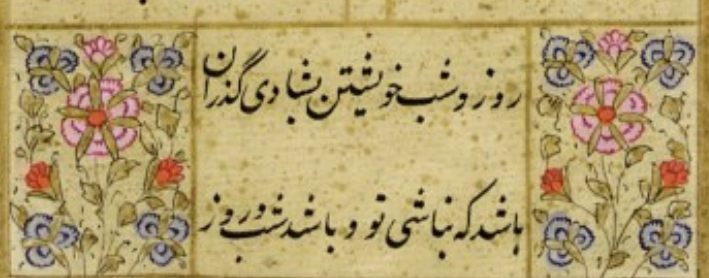 روز و شب خویشتن بشادی گذران
باشد که نباشی تو و باشد شب و روز